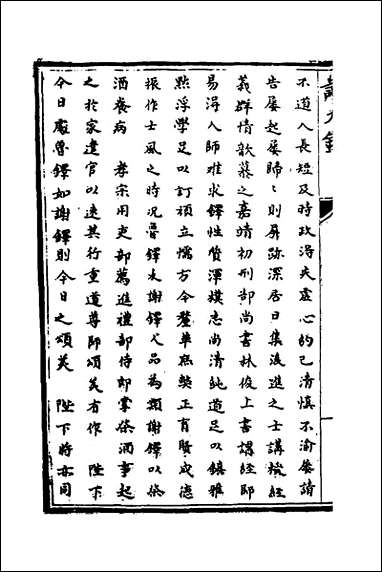 不道人長短及時政得失處心的已清慎不渝屡請
告屡起屡歸歸則屏跡深居日集後進之士講授經
義群情歆慕之嘉靖初刑部尚書林俊上書謂經師
易得人師难求鐸性質渾樸志尚清純道足以鎮雅
黙浮學足以訂頑立懦方今釐革熙奬正育賢成德
振作士風之時况魯鐸太謝鐸人品為類謝鐸以祭
酒養病 孝宗用吏部薦進禮部侍郎掌祭酒事起
之於家遣官以速其行重道尊師頌美有作 陛下
今日處魯鐸如謝鐸則今日之頌美 陛下將亦同